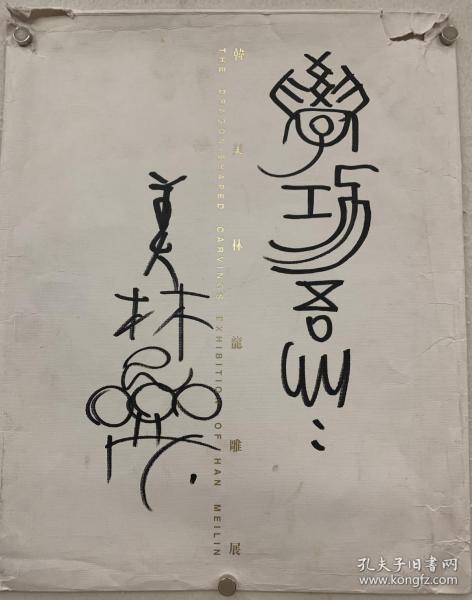 學功吾兄:
韓美林龍雕展
THE DRAGON-SHAPED CARVINGS EXHIBITION OF HAN MEILIN
美林
孔夫子旧书网
www.kongfz.com